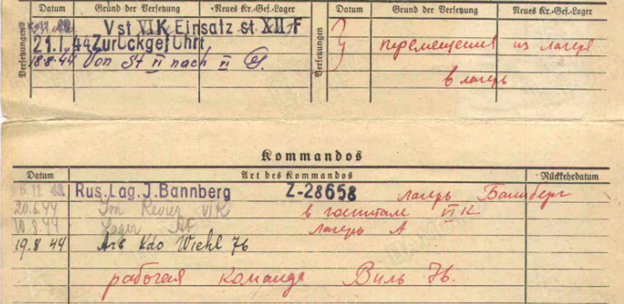 Datum Grund der Versetzung Neues Kr.-Gef.-Lager Datum Grund der Versetzung Neues Kr.-Gef.-Lager
Versetzungen Vst VI K Einsatz st. XII F Versetzungen
21.1.44 Zurückgeführt перемещения из лагеря
18.8.44 Von St II nach II в лагерь
Kommandos
Datum Art des Kommandos Rückkehrdatum
Rus. Lag. J. Bannberg Z-28658 лагерь Баннберг
20.6.44 Im Revier VI K в госпитале VI K
10.8.44 Lager лагерь А
19.8.44 Arb Kdo Wiehl 76
рабочая команда Виль 76.